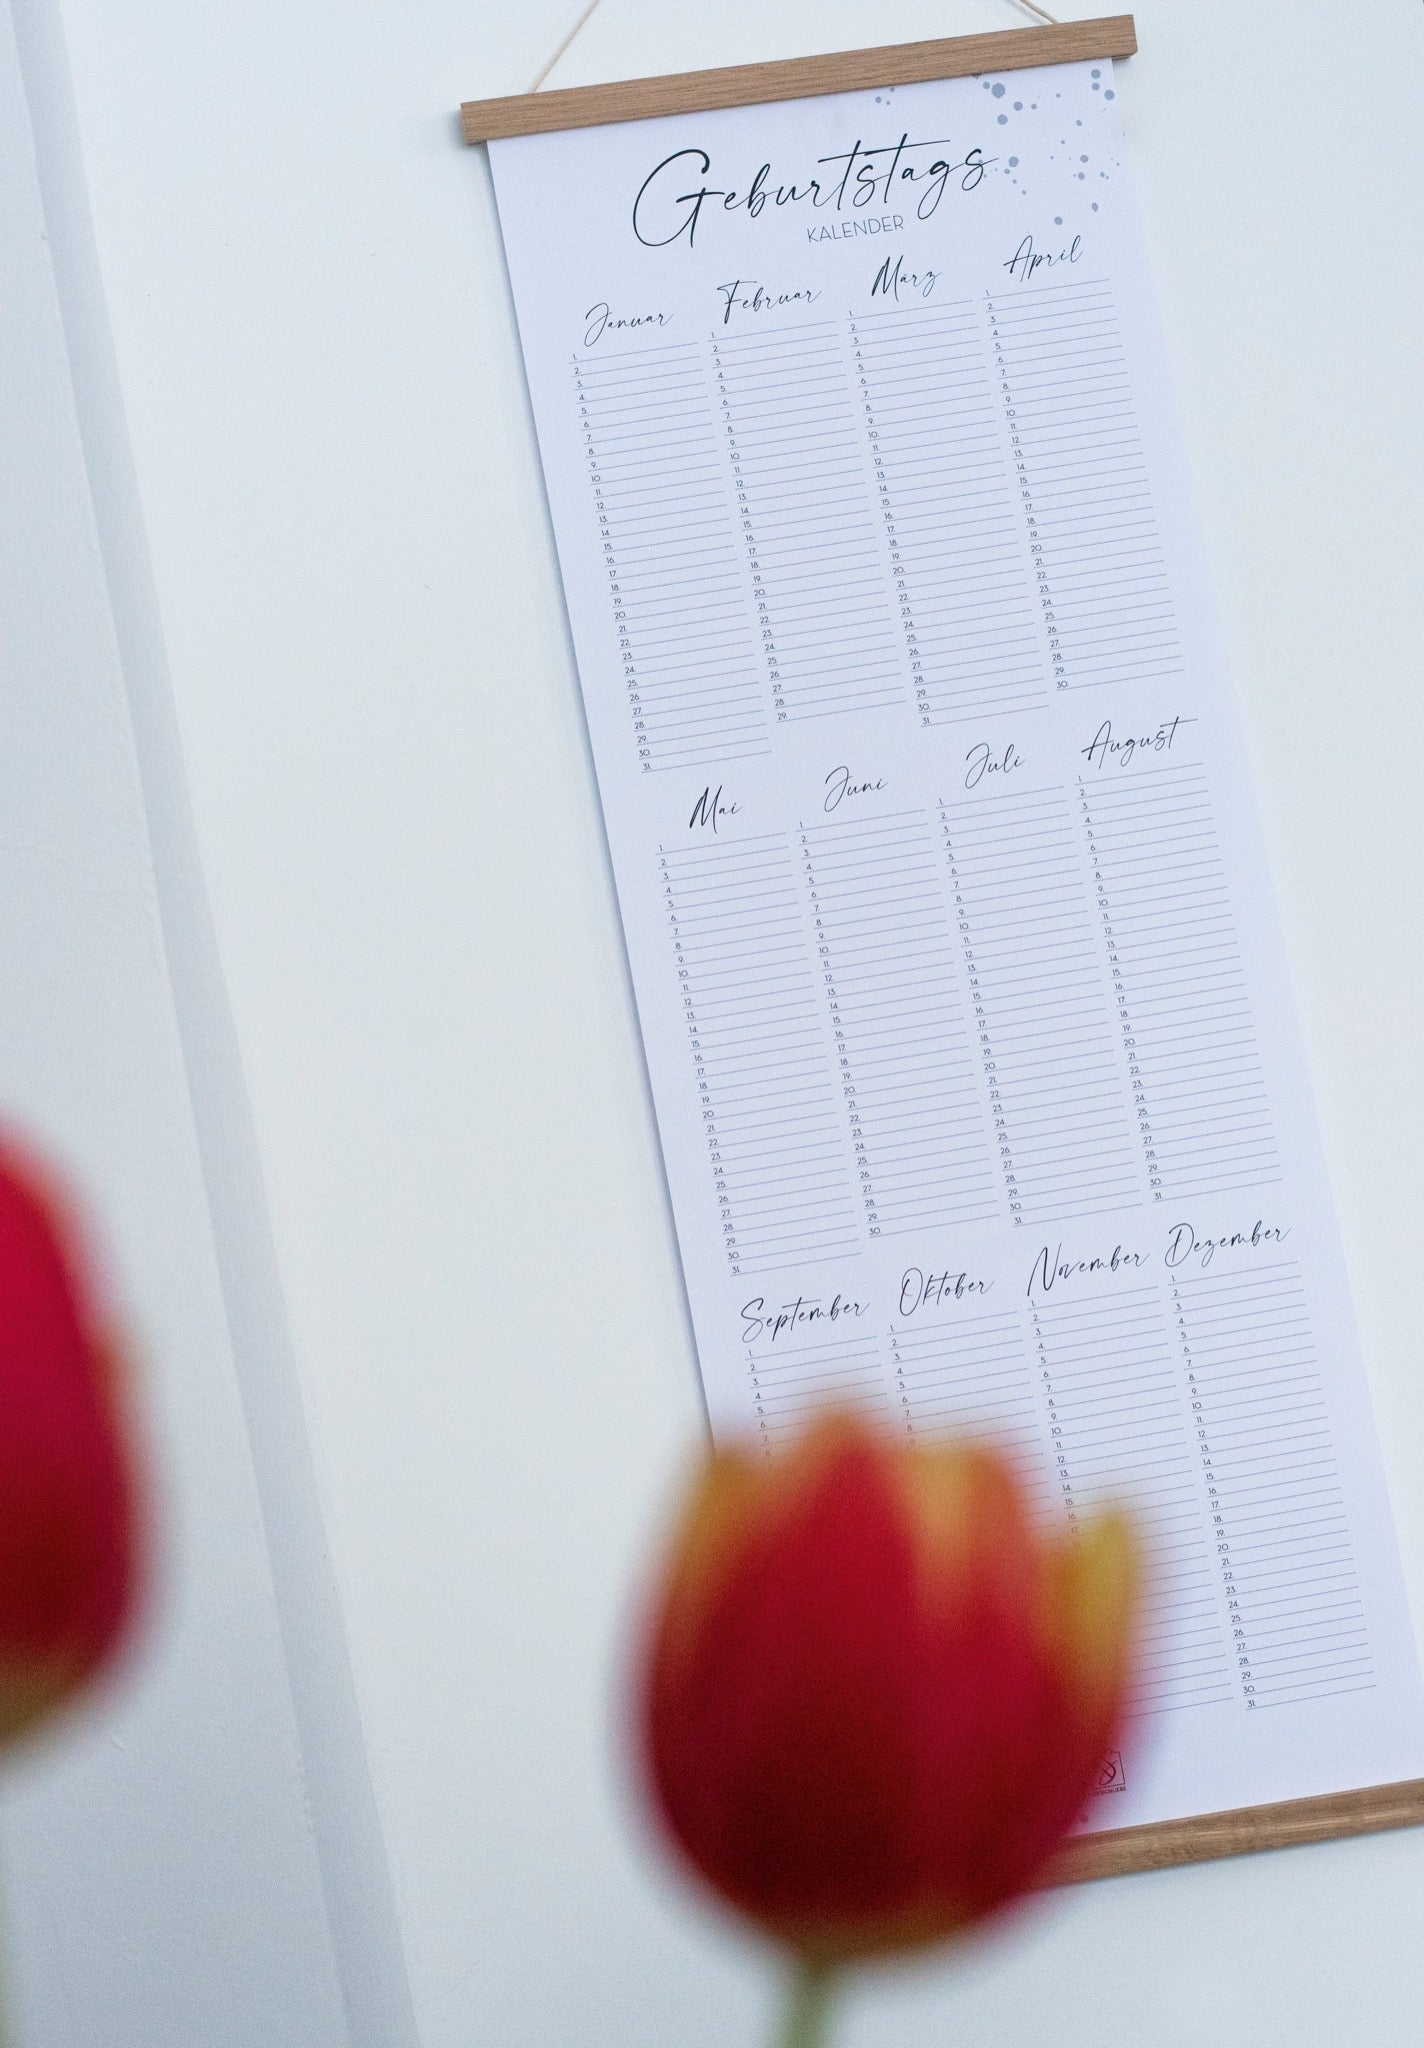 Geburtstags
KALENDER
Januar Februar März April
1. 1. 1. 1.
2. 2. 2. 2.
3. 3. 3. 3.
4. 4. 4. 4.
5. 5. 5. 5.
6. 6. 6. 6.
7. 7. 7. 7.
8. 8. 8. 8.
9. 9. 9. 9.
10. 10. 10. 10.
11. 11. 11. 11.
12. 12. 12. 12.
13. 13. 13. 13.
14. 14. 14. 14.
15. 15. 15. 15.
16. 16. 16. 16.
17. 17. 17. 17.
18. 18. 18. 18.
19. 19. 19. 19.
20. 20. 20. 20.
21. 21. 21. 21.
22. 22. 22. 22.
23. 23. 23. 23.
24. 24. 24. 24.
25. 25. 25. 25.
26. 26. 26. 26.
27. 27. 27. 27.
28. 28. 28. 28.
29. 29. 29. 29.
30. 30. 30.
31. 31.
Mai Juni Juli August
1. 1. 1. 1.
2. 2. 2. 2.
3. 3. 3. 3.
4. 4. 4. 4.
5. 5. 5. 5.
6. 6. 6. 6.
7. 7. 7. 7.
8. 8. 8. 8.
9. 9. 9. 9.
10. 10. 10. 10.
11. 11. 11. 11.
12. 12. 12. 12.
13. 13. 13. 13.
14. 14. 14. 14.
15. 15. 15. 15.
16. 16. 16. 16.
17. 17. 17. 17.
18. 18. 18. 18.
19. 19. 19. 19.
20. 20. 20. 20.
21. 21. 21. 21.
22. 22. 22. 22.
23. 23. 23. 23.
24. 24. 24. 24.
25. 25. 25. 25.
26. 26. 26. 26.
27. 27. 27. 27.
28. 28. 28. 28.
29. 29. 29. 29.
30. 30. 30. 30.
31. 31. 31.
September Oktober November Dezember
1. 1. 1. 1.
2. 2. 2. 2.
3. 3. 3. 3.
4. 4. 4. 4.
5. 5. 5. 5.
6. 6. 6. 6.
7. 7. 7. 7.
8. 8. 8. 8.
9. 9. 9.
10. 10.
11. 11.
12. 12.
13. 13.
14. 14.
15. 15.
16. 16.
17. 17.
18.
19.
20.
21.
22.
23.
24.
25.
26.
27.
28.
29.
30.
31.